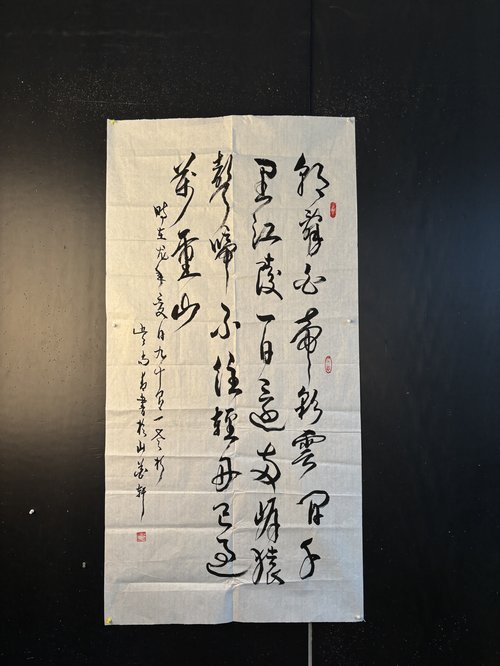 朝辭白帝彩雲間千
里江陵一日還兩岸猿
聲啼不住輕舟已過
萬重山
時在龙年夏日九十
書於山軒